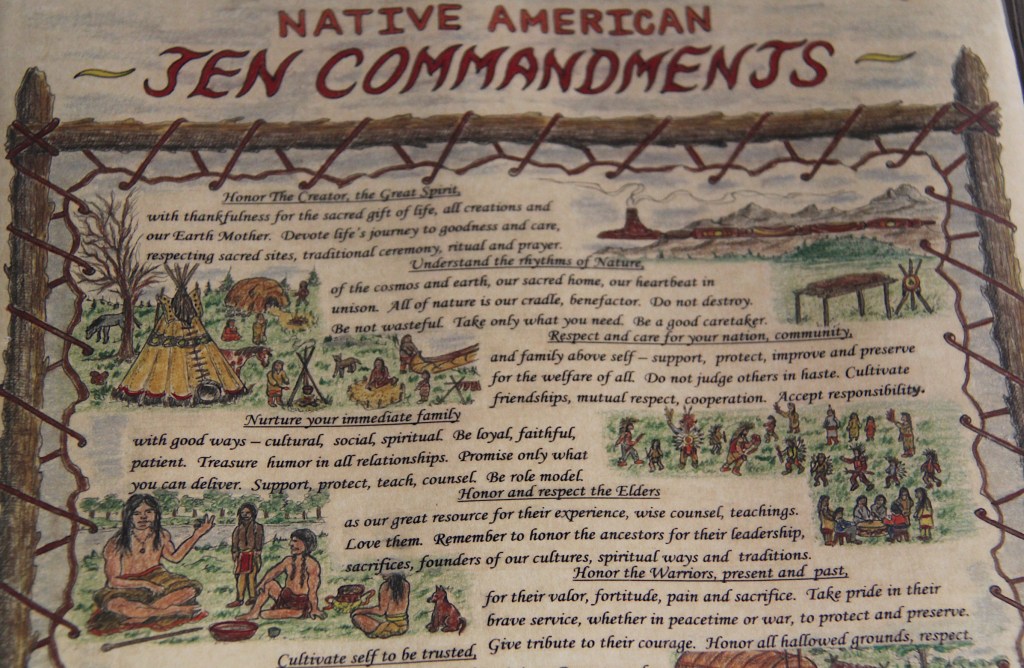 NATIVE AMERICAN
TEN COMMANDMENTS
Honor The Creator, the Great Spirit,
with thankfulness for the sacred gift of life, all creations and
our Earth Mother. Devote life's journey to goodness and care,
respecting sacred sites, traditional ceremony, ritual and prayer.
Understand the rhythms of Nature,
of the cosmos and earth, our sacred home, our heartbeat in
unison. All of nature is our cradle, benefactor. Do not destroy.
Be not wasteful. Take only what you need. Be a good caretaker.
Respect and care for your nation, community,
and family above self – support, protect, improve and preserve
for the welfare of all. Do not judge others in haste. Cultivate
friendships, mutual respect, cooperation. Accept responsibility.
Nurture your immediate family
with good ways – cultural, social, spiritual. Be loyal, faithful,
patient. Treasure humor in all relationships. Promise only what
you can deliver. Support, protect, teach, counsel. Be role model.
Honor and respect the Elders
as our great resource for their experience, wise counsel, teachings.
Love them. Remember to honor the ancestors for their leadership,
sacrifices, founders of our cultures, spiritual ways and traditions.
Honor the Warriors, present and past,
for their valor, fortitude, pain and sacrifice. Take pride in their
brave service, whether in peacetime or war, to protect and preserve.
Give tribute to their courage. Honor all hallowed grounds, respect.
Cultivate self to be trusted,